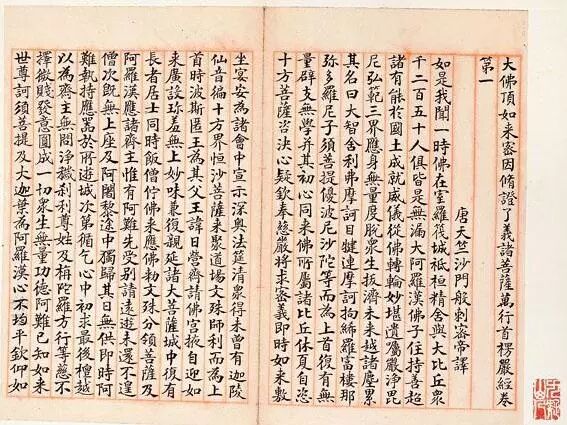 大佛頂如来密因脩證了義諸菩薩萬行首楞嚴經卷
第一
唐天竺沙門般剌密帝譯
如是我聞一時佛在室羅筏城祇桓精舍與大比丘衆
千二百五十人俱皆是無漏大阿羅漢佛子住持善超
諸有能於國土成就威儀從佛轉輪妙堪遺囑嚴淨毘
尼弘範三界應身無量度脫衆生拔濟未来越諸塵累
其名曰大智舍利弗摩訶目犍連摩訶拘絺羅富樓那
弥多羅尼子須菩提優波尼沙陀等而為上首復有無
量辟支無學并其初心同来佛所屬諸比丘休夏自恣
十方菩薩咨決心疑欽奉慈嚴將求密義即時如来敷
坐宴安為諸會中宣示深奥法筵清衆得未曾有迦陵
仙音徧十方界恒沙菩薩来聚道場文殊師利而為上
首時波斯匿王為其父王諱日營齋請佛宮掖自迎如
来廣設珍羞無上妙味兼復親延諸大菩薩城中復有
長者居士同時飯僧佇佛来應佛勑文殊分領菩薩及
阿羅漢應諸齋主惟有阿難先受別請遠遊未還不遑
僧次既無上座及阿闍黎途中獨歸其日無供即時阿
難執持應器於所遊城次第循乞心中初求最後檀越
以為齋主無問淨穢刹利尊姓及栴陀羅方行等慈不
擇微賤發意圓成一切衆生無量功德阿難已知如来
世尊訶須菩提及大迦葉為阿羅漢心不均平欽仰如